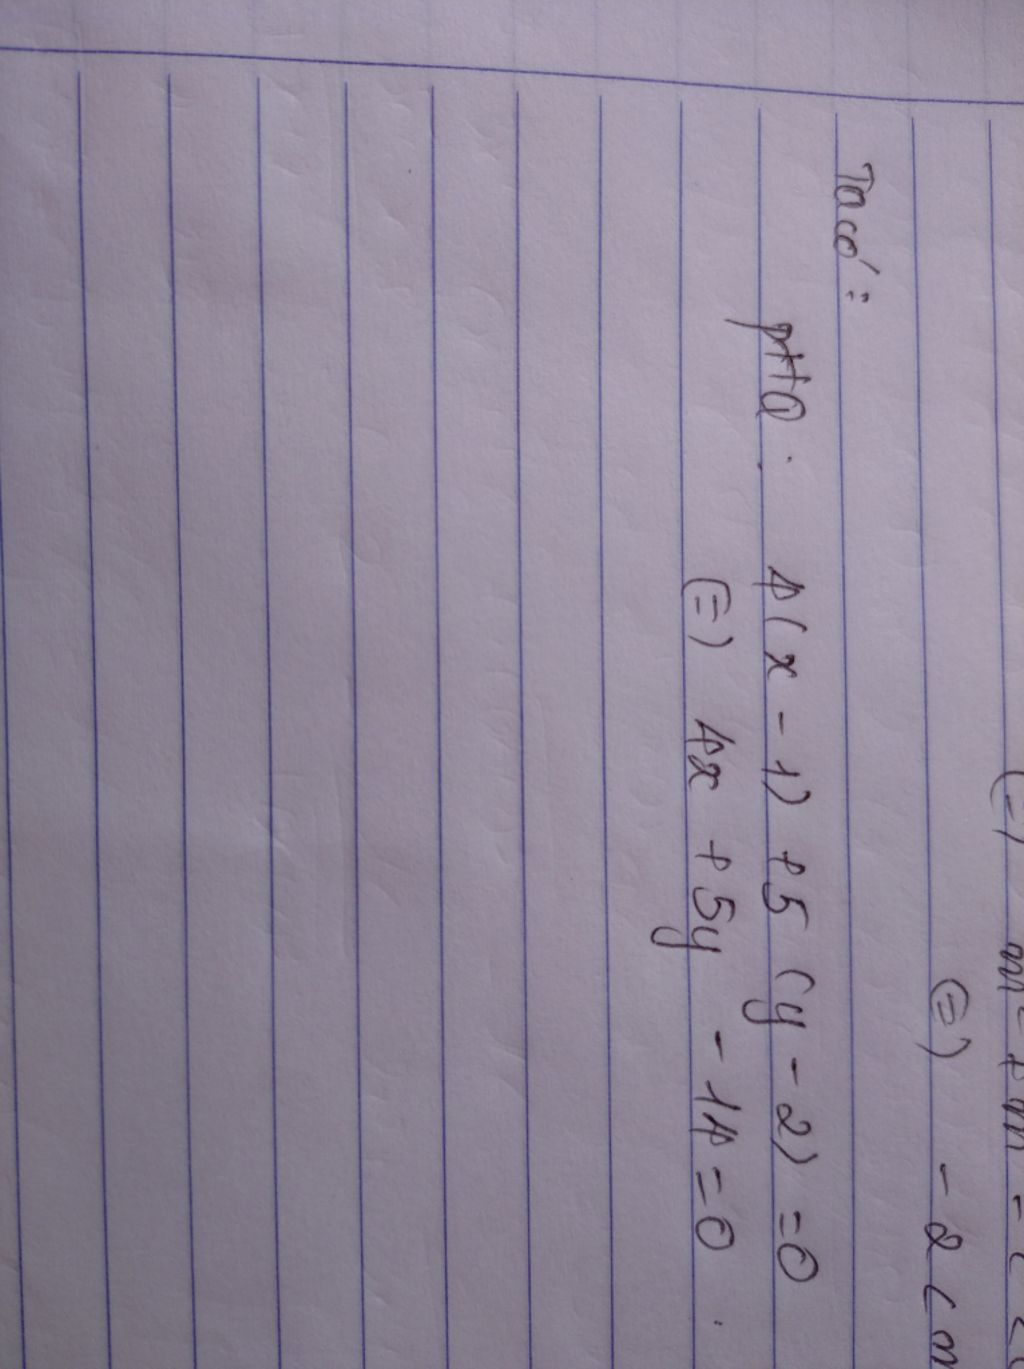 (=) m² + m - 2 <
(=) - 2 < m
Ta có :
pttq : 4(x - 1) + 5 (y - 2) = 0
(=) 4x + 5y - 14 = 0 .